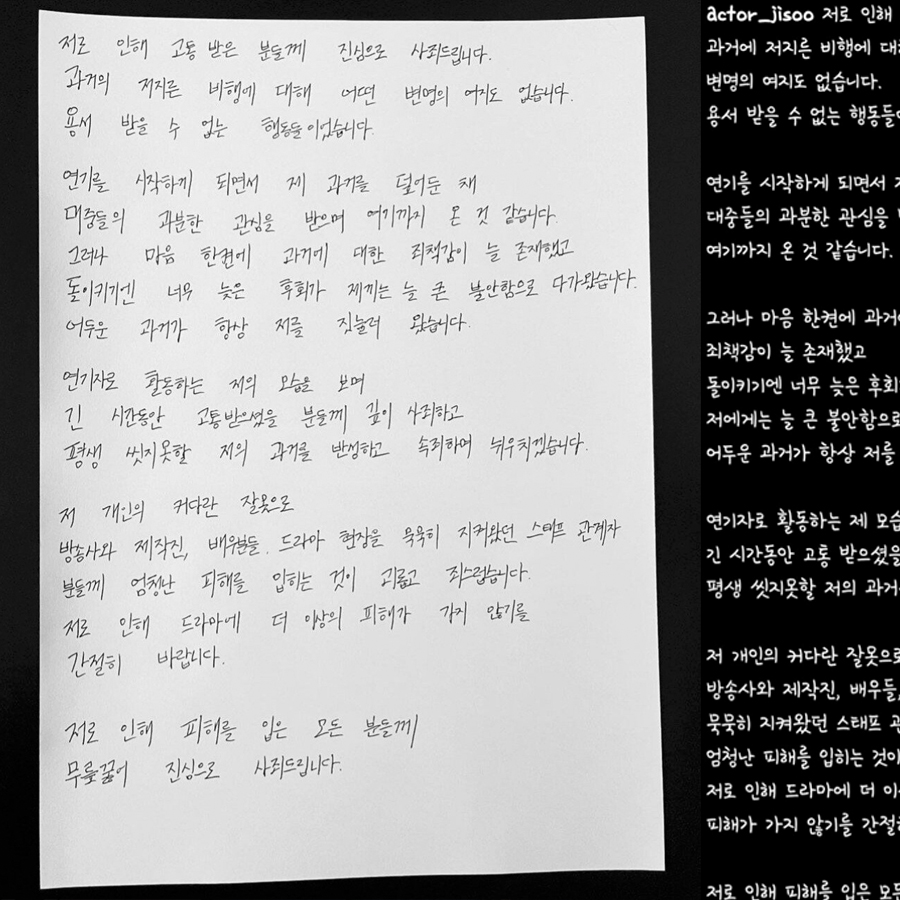 저로 인해 고통 받은 분들께 진심으로 사죄드립니다.
과거의 저지른 비행에 대해 어떤 변명의 여지도 없습니다.
용서 받을 수 없는 행동들이었습니다.
연기를 시작하게 되면서 제 과거를 덮어둔 채
대중들의 과분한 관심을 받으며 여기까지 온 것 같습니다.
그러나 마음 한켠에 과거에 대한 죄책감이 늘 존재했고
돌이키기엔 너무 늦은 후회가 제끼는 늘 큰 불안함으로 다가왔습니다.
어두운 과거가 항상 저를 짓눌러 왔습니다.
연기자로 활동하는 저의 모습을 보며
긴 시간동안 고통받으셨을 분들께 깊이 사죄하고
평생 씻지못할 저의 과거를 반성하고 속죄하며 뉘우치겠습니다.
저 개인의 커다란 잘못으로
방송사와 제작진, 배우분들, 드라마 현장을 묵묵히 지켜왔던 스태프 관계자
분들께 엄청난 피해를 입히는 것이 괴롭고 죄스럽습니다.
저로 인해 드라마에 더 이상의 피해가 가지 않기를
간절히 바랍니다.
저로 인해 피해를 입은 모든 분들께
무릎꿇어 진심으로 사죄드립니다.
actor_jisoo 저로 인해
과거에 저지른 비행에 대
변명의 여지도 없습니다.
용서 받을 수 없는 행동들
연기를 시작하게 되면서
대중들의 과분한 관심을
여기까지 온 것 같습니다.
그러나 마음 한켠에 과거
죄책감이 늘 존재했고
돌이키기엔 너무 늦은 후회
저에게는 늘 큰 불안함으로
어두운 과거가 항상 저를
연기자로 활동하는 제 모습
긴 시간동안 고통 받으셨을
평생 씻지못할 저의 과거
저 개인의 커다란 잘못으로
방송사와 제작진, 배우들,
묵묵히 지켜왔던 스태프
엄청난 피해를 입히는 것이
저로 인해 드라마에 더
피해가 가지 않기를 간절
저로 인해 피해를 입은 모든